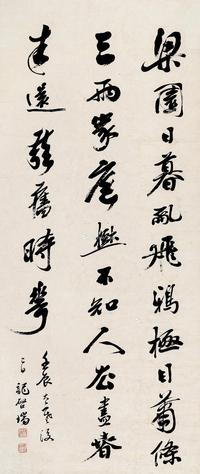 梁園日暮亂飛鴉極目蕭條
三兩家庭樹不知人去盡春
來還發舊時華
壬辰
龍啓瑞